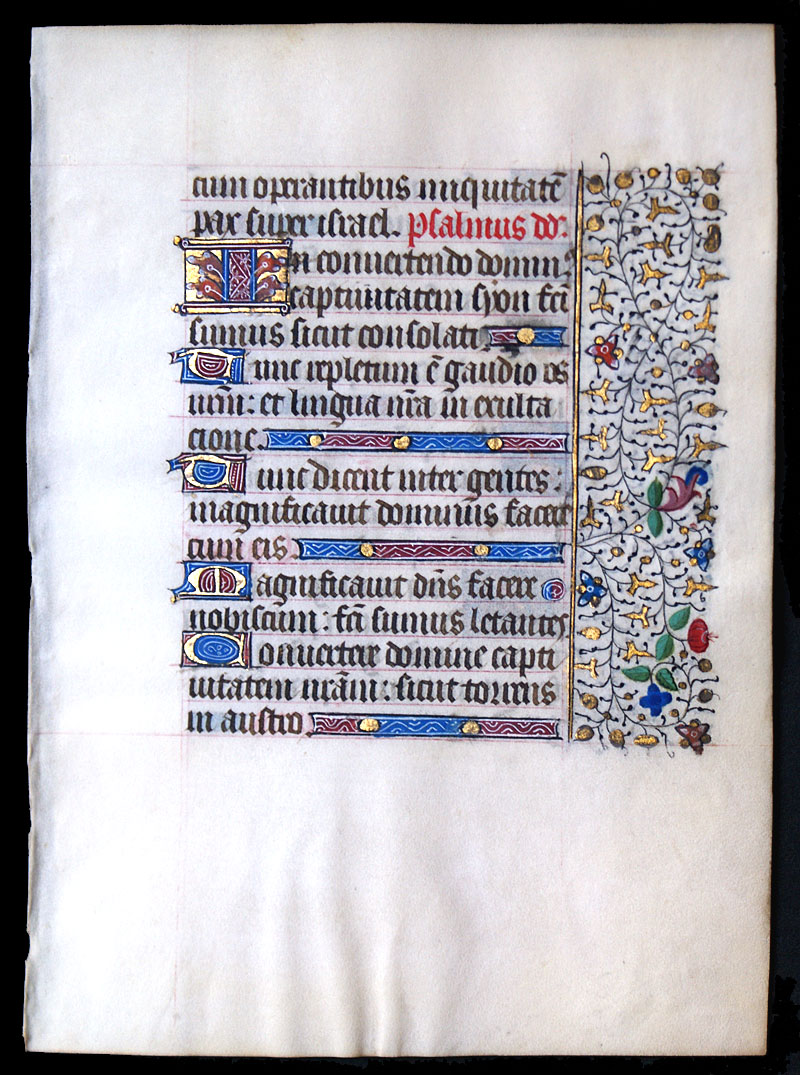 cum operantibus iniquitatē
pax super israel. Psalmus dd.
In conuertendo domin⁹
captiuitatem syon fcī
sumus sicut consolati.
Tunc repletum ē gaudio os
nr̄m: et lingua nr̄a in exulta
cione.
Tunc dicent inter gentes:
magnificauit dominus facere
cum eis.
Magnificauit dn̄s facere
nobiscum: fcī sumus letantes
Conuertere domine capti
uitatem nrām: sicut torrens
in austro.